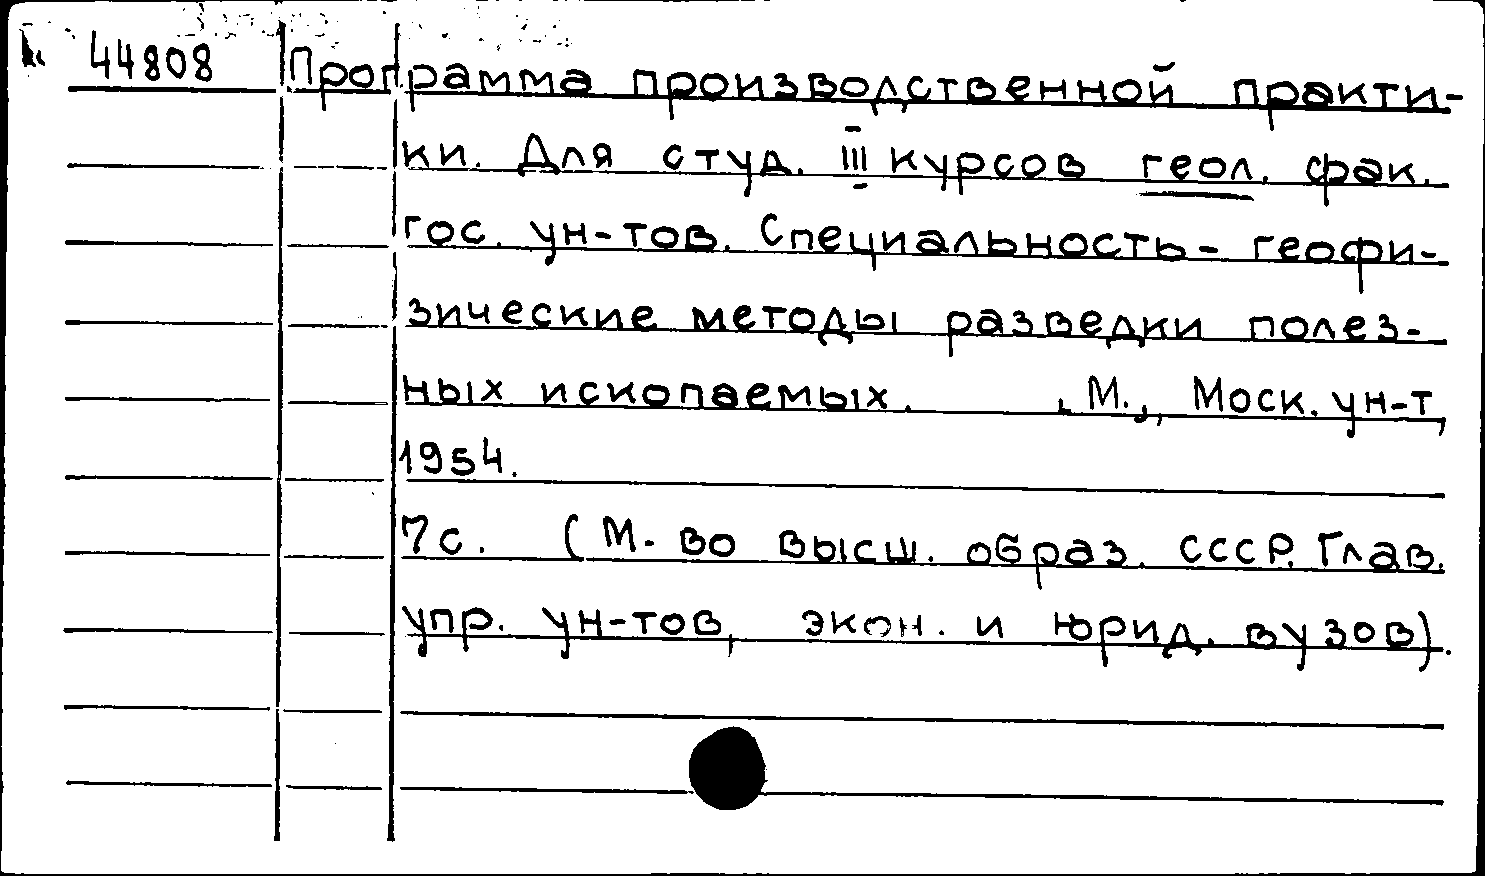 44808 Программа производственной практи-
ки. Для студ. III курсов геол. фак.
гос. ун-тов. Специальность - геофи-
зические методы разведки полез-
ных ископаемых. М., Моск. ун-т,
1954.
7 с. (М-во высш. образ. СССР. Глав.
упр. ун-тов, экон. и юрид. вузов).